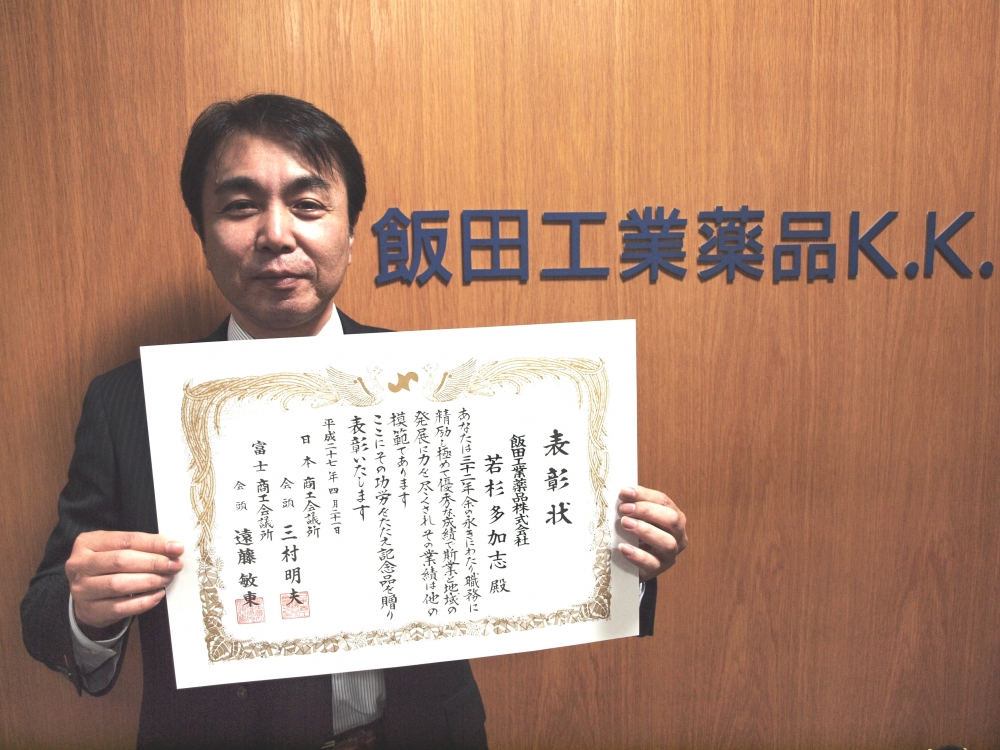 飯田工業薬品K.K.
表彰状
飯田工業薬品株式会社
若杉多加志 殿
あなたは三十二年余の永きにわたり職務に
精励し極めて優秀な成績で斯業と地域の
発展に力を尽くされその業績は他の
模範であります
ここにその功労をたたえ記念品を贈り
表彰いたします
平成二十七年四月二十一日
日本商工会議所
会頭 三村明夫
富士商工会議所
会頭 遠藤敏東